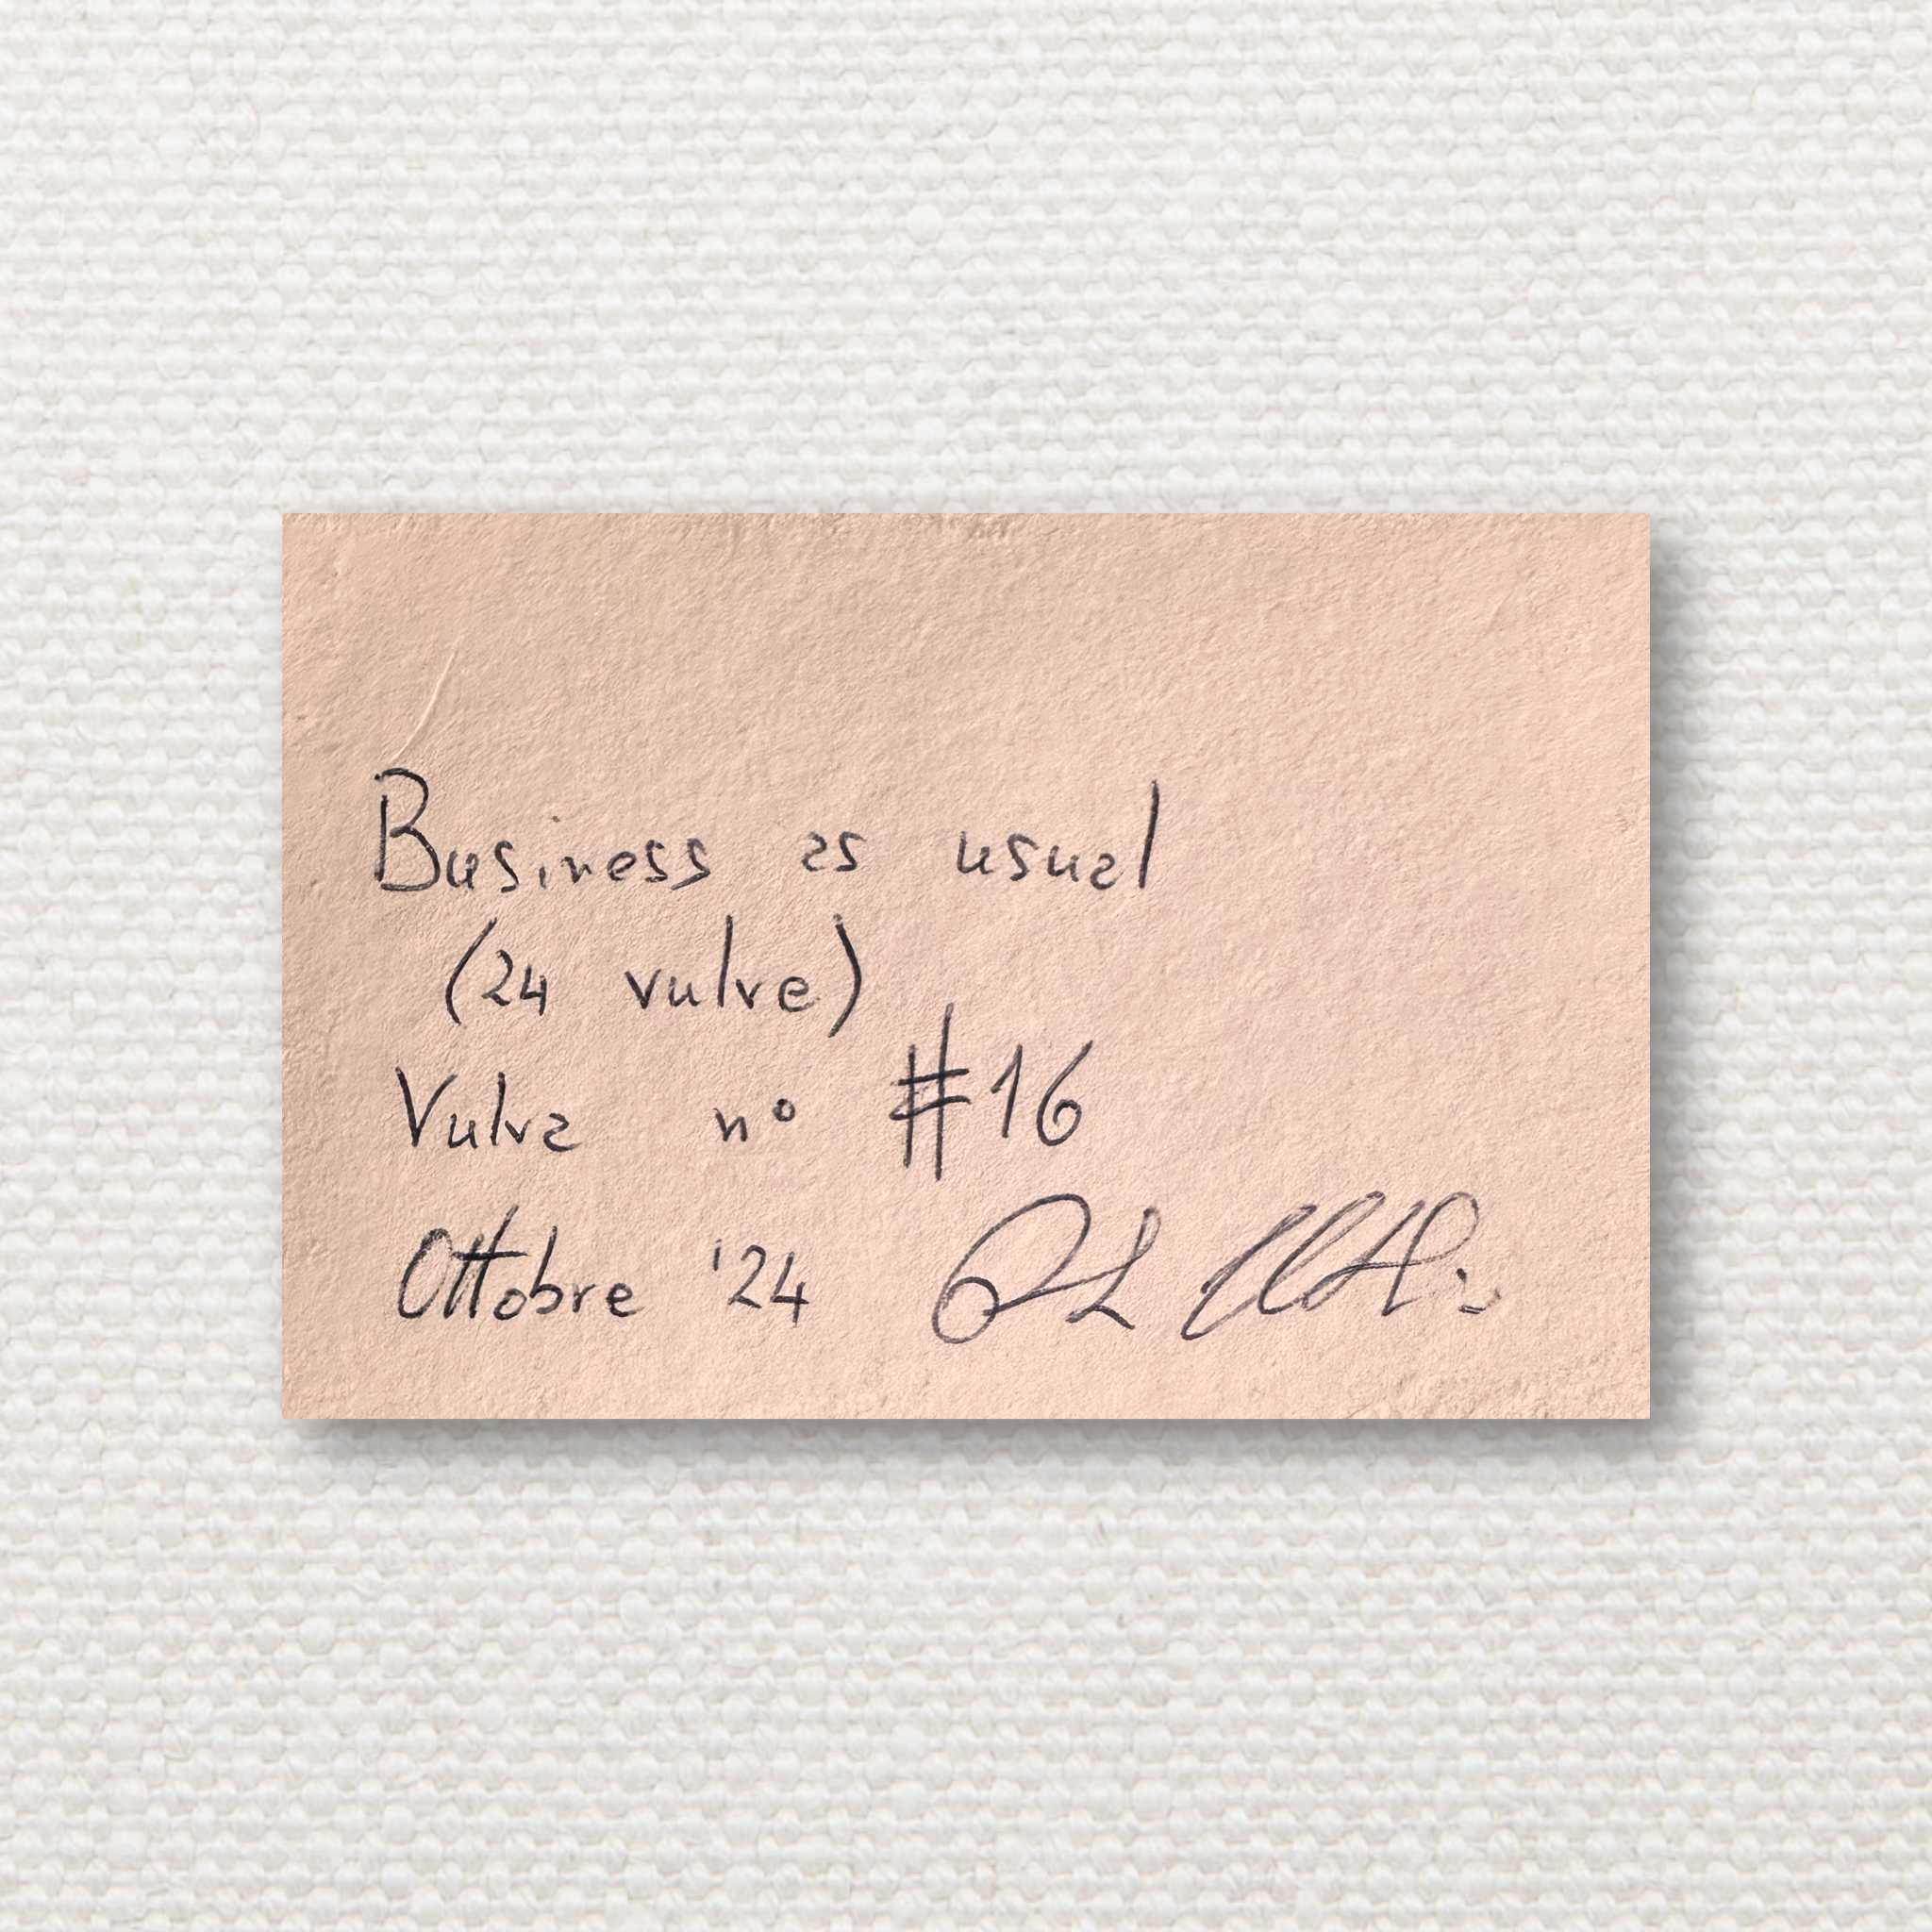 Business as usual
(24 vulve)
Vulva n° #16
Ottobre '24